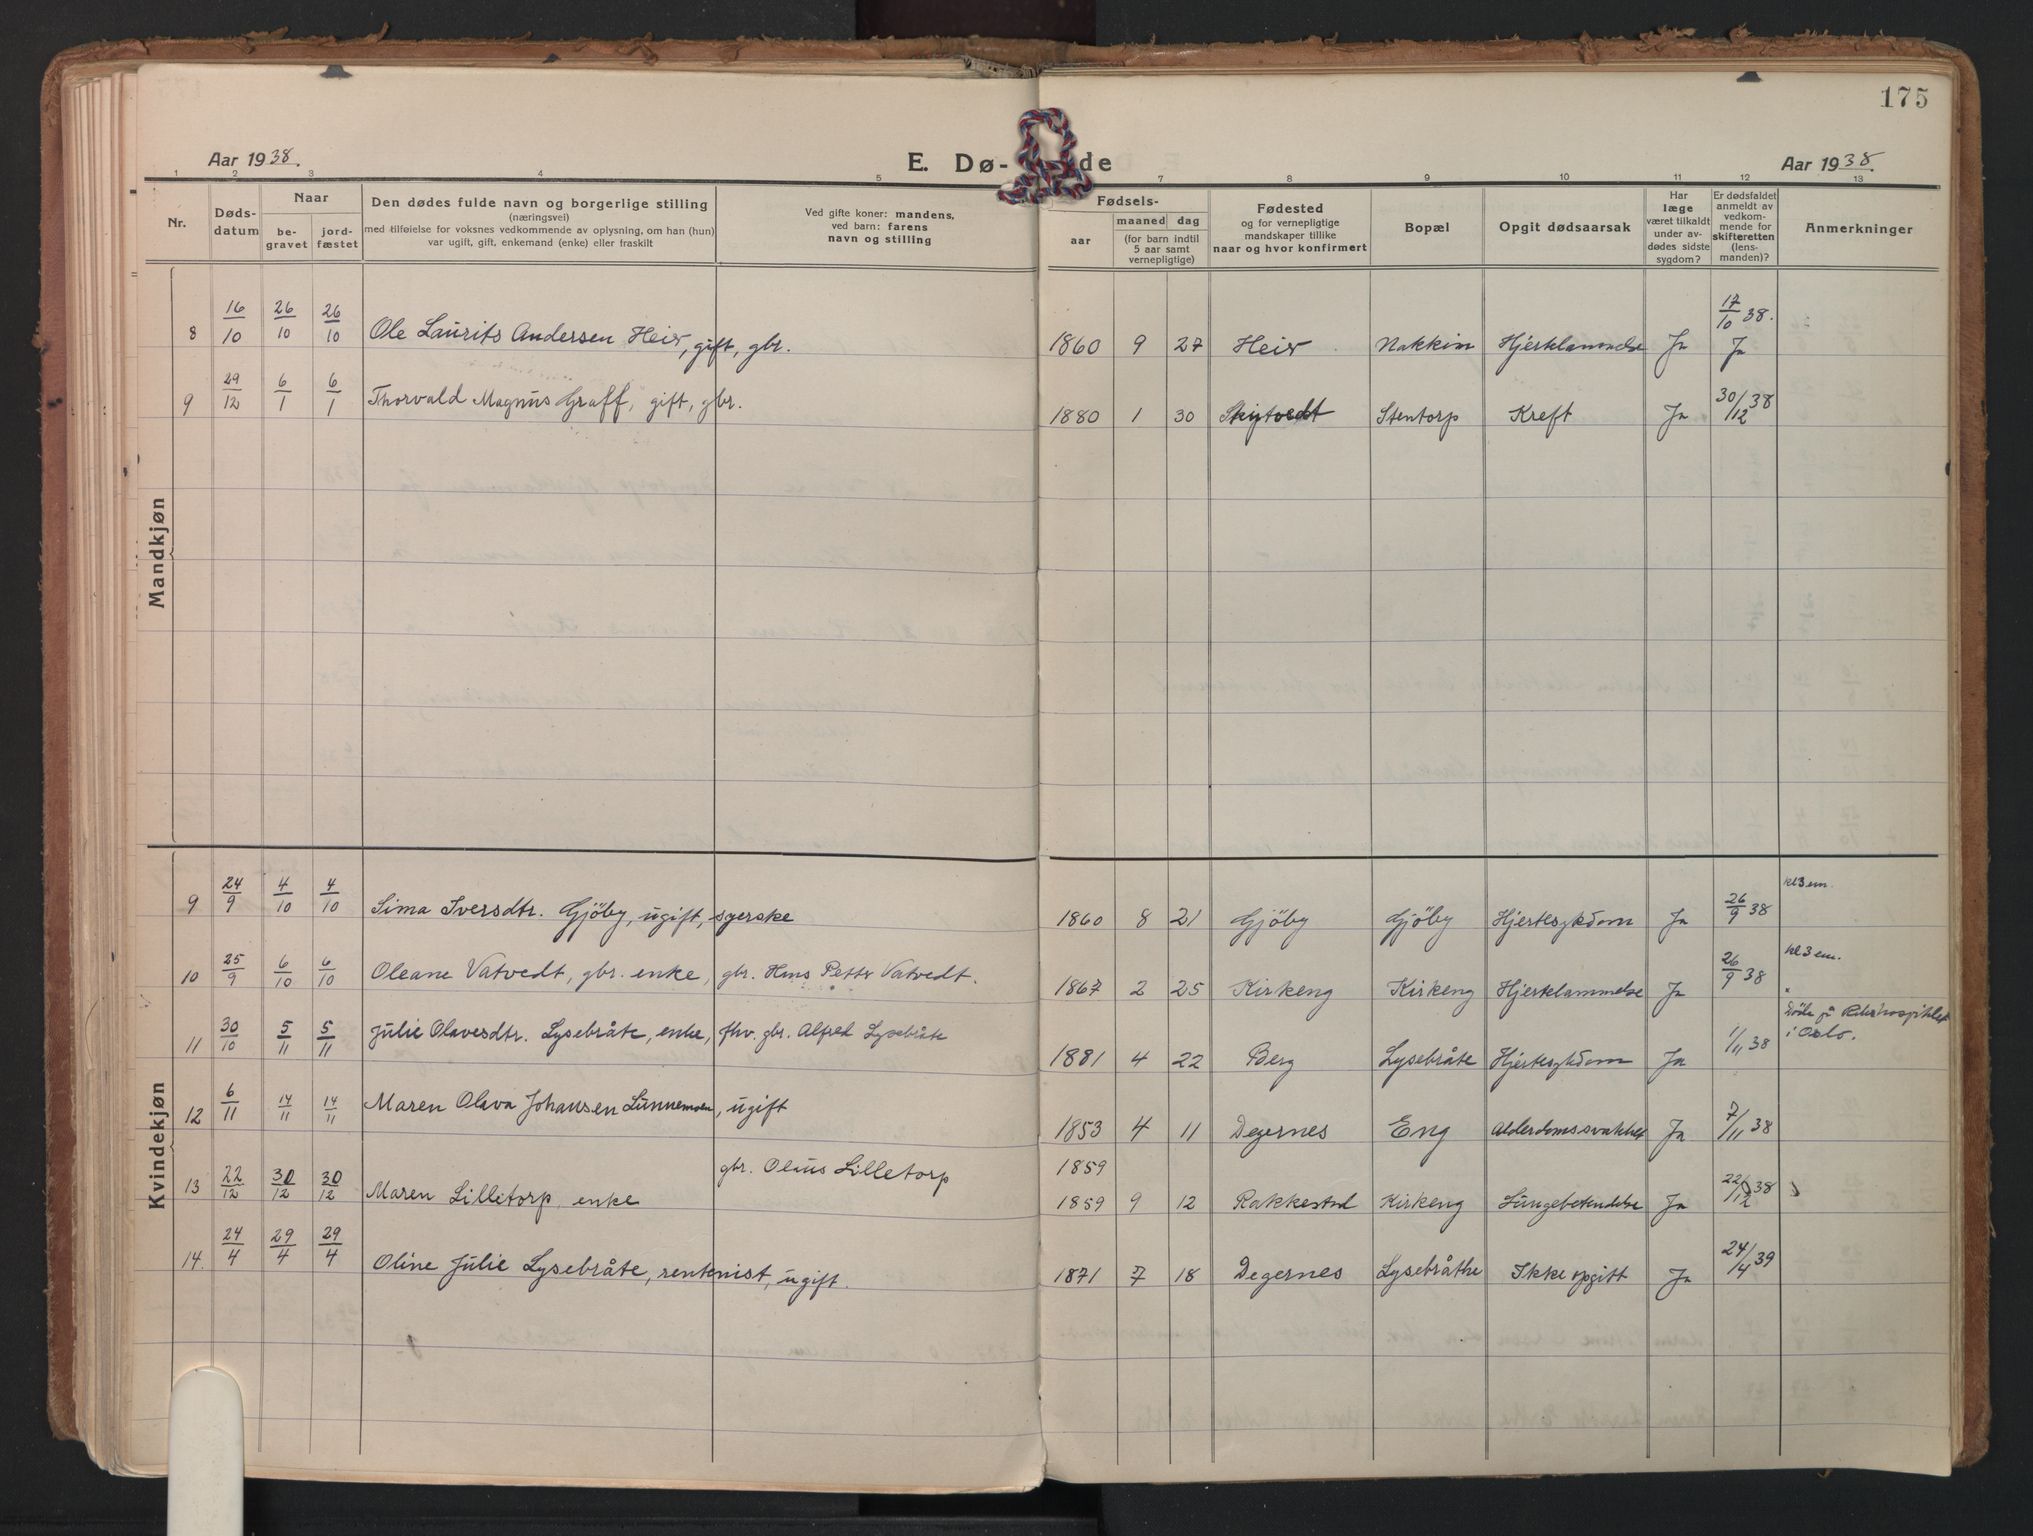 175
Aar 1938.
E. Dø-
de
Aar 1938.
1 2 3 4 5 7 8 9 10 11 12 13
Nr.
Døds-
datum
Naar
be-
gravet
jord-
fæstet
Den dødes fulde navn og borgerlige stilling
(næringsvei)
med tilføielse for voksnes vedkommende av oplysning, om han (hun)
var ugift, gift, enkemand (enke) eller fraskilt
Ved gifte koner: mandens,
ved barn: farens
navn og stilling
Fødsels-
aar
maaned
dag
(for barn indtil
5 aar samt
vernepligtige)
Fødested
og for vernepligtige
mandskaper tillike
naar og hvor konfirmert
Bopæl
Opgit dødsaarsak
Har
læge
været tilkaldt
under av-
dødes sidste
sygdom?
Er dødsfaldet
anmeldt av
vedkom-
mende for
skifteretten
(lens-
manden)?
Anmerkninger
Mandkjøn
8 16/10 26/10 26/10 Ole Laurits Andersen Heir, gift, gbr. 1860 9 27 Heir Nakkim Hjerklammelse Ja 17/10 38. Ja
9 29/12 6/1 6/1 Thorvald Magnus Graff, gift, gbr. 1880 1 30 Skiptvedt Stentorp Kreft Ja 30/12 38
Kvindekjøn
9 24/9 4/10 4/10 Sima Iversdtr. Gjöby, ugift, syerske 1860 8 21 Gjöby Gjöby Hjertesykdom Ja 26/9 38 kl 3 em.
10 25/9 6/10 6/10 Oleane Vatvedt, gbr. enke, gbr. Hans Petter Vatvedt. 1867 2 25 Kirkeng Kirkeng Hjerklammelse Ja 26/9 38 kl 3 em.
11 30/10 5/11 5/11 Julie Olavesdtr. Lysebråte, enke, fhv. gbr. Alfred Lysebråte 1881 4 22 Berg Lysebråte Hjertesykdom Ja 1/11 38 Döde på Rikshospitalet
i Oslo.
12 6/11 14/11 14/11 Maren Olava Johansen Lunnemoen, ugift 1853 4 11 Degernes Eng Alderdomssvakhet Ja 7/11 38
13 22/12 30/12 30/12 Maren Lilletorp, enke gbr. Olaus Lilletorp 1859
1859 9 12 Rakkestad Kirkeng Lungebetendelse Ja 22/12 38
14. 24/4 29/4 29/4 Oline Julie Lysebråte, rentenist, ugift. 1871 7 18 Degernes Lysebråthe Ikke opgitt Ja 24/4 39